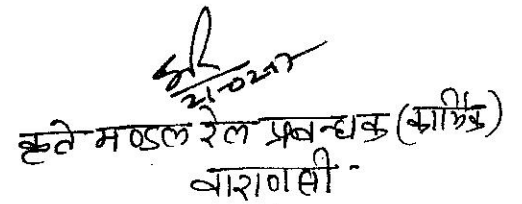 कृते मण्डल रेल प्रबन्धक (कार्मिक)
वाराणसी